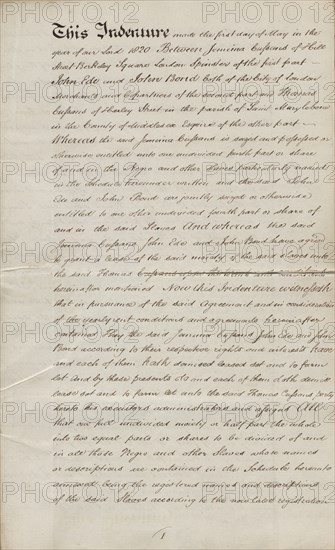 This Indenture made the first day of May in the
year of our Lord 1820 Between Jemima Cussans of Hill
Street Berkeley Square London Spinster of the first part
John Ede and John Bond both of the City of London
Merchants and Copartners of the second part and Thomas
Cussans of Harley Street in the parish of Saint Marylebone
in the County of Middlesex Esquire of the other part
Whereas the said Jemima Cussans is seized and possessed or
otherwise entitled unto one undivided fourth part or share
of and in the Negro and other Slaves particularly named
in the Schedule hereunder written and the said John
Ede and John Bond are jointly seized or otherwise
entitled to one other undivided fourth part or share of
and in the said Slaves And whereas the said
Jemima Cussans, John Ede and John Bond have agreed
to grant a Lease of the said moiety of the said Slaves unto
the said Thomas Cussans upon the terms and conditions
hereinafter mentioned Now this Indenture witnesseth
that in pursuance of the said Agreement and in consideration
of the yearly rent conditions and agreements hereinafter
contained They the said Jemima Cussans John Ede and John
Bond according to their respective rights and interests Have
and each of them Hath demised leased set and to farm
let And by these presents Do and each of them doth demise
lease set and to farm let unto the said Thomas Cussans party
hereto his executors administrators and assigns All
that one full undivided moiety or half part the whole
into two equal parts or shares to be divided of and
in all those Negro and other Slaves whose names
or descriptions are contained in the Schedule hereunto
annexed being the registered names and descriptions
of the said Slaves according to the now last registration
1